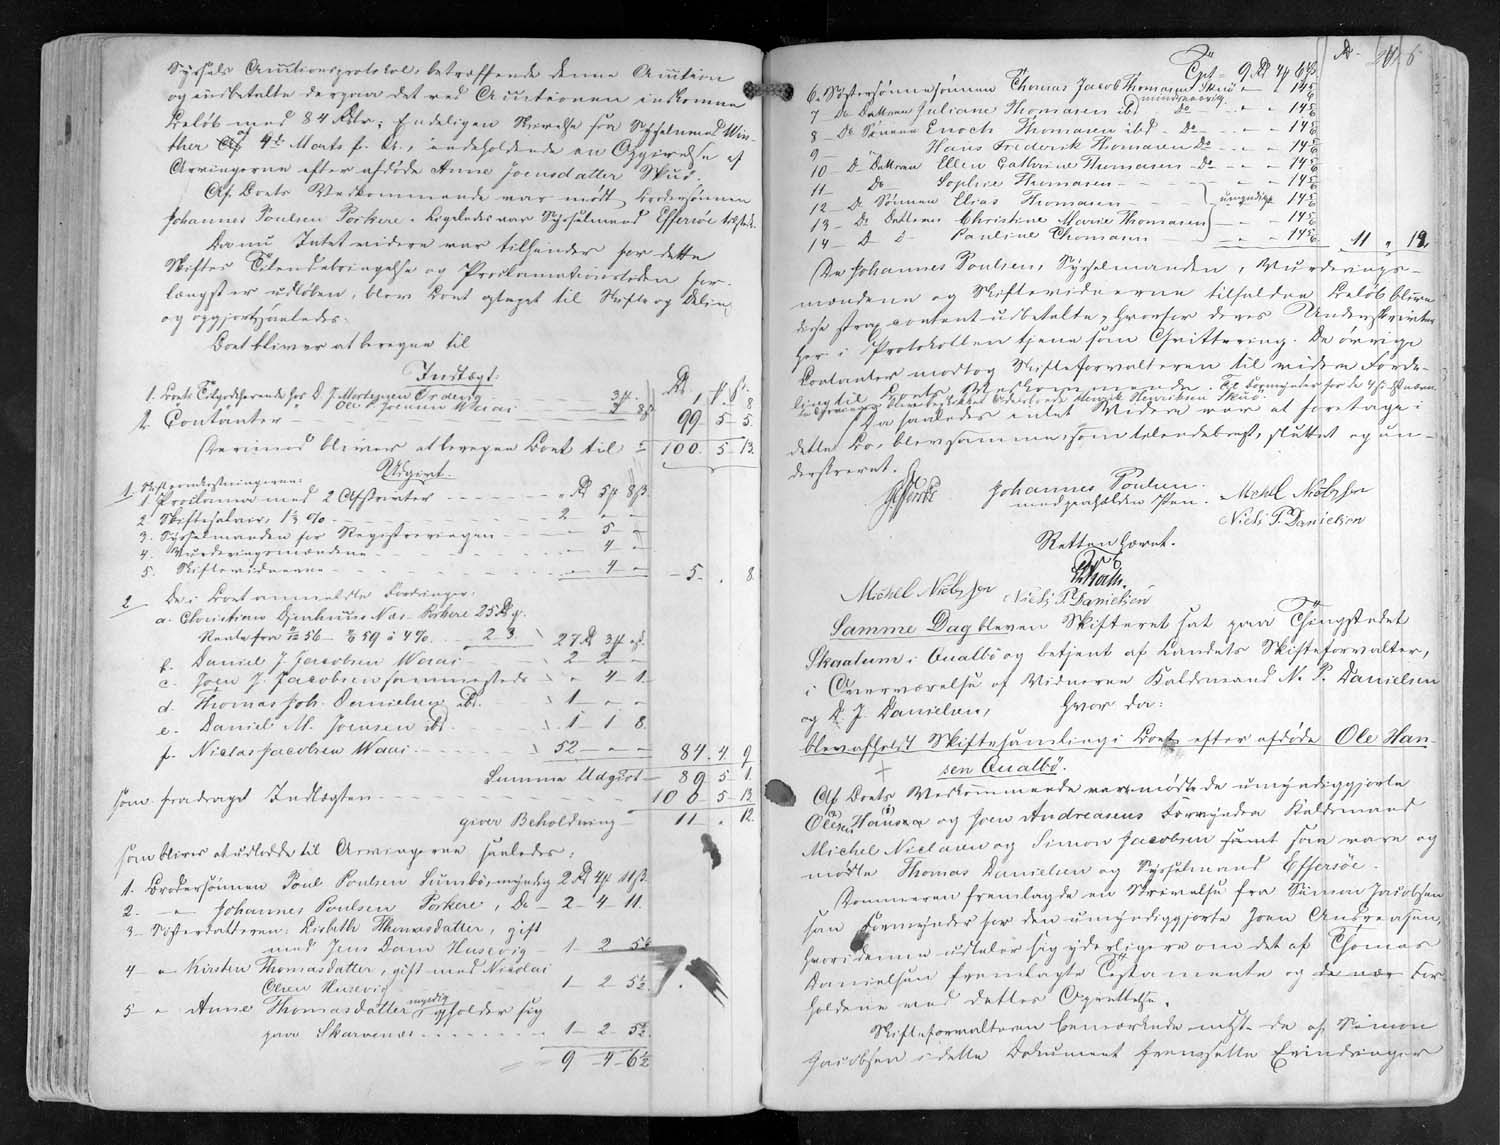 Syssels Auctionsprotokol, betræffende denne Auction
og indbetalte derpaa det ved Auctionen indkomne
Beløb med 84 Rdlr; Endeligen Skrivelse fra Sysselmand Win-
ther af 4de Marts f. A. indeholdende en Opgivelse af
Arvingerne efter afdøde Anne Joensdatter Skuø.
Af Boets Vedkommende var mødt Brodersønnen
Johannes Poulsen Porkere. Ligeledes var Sysselmand Effersøe tilstede.
Da nu Intet videre var tilhinder for dette
Skiftes Tilendebringelse og Proclamationstiden for-
længst er udløben, blev Boet optaget til Skifte og Deling
og opgjort saaledes:
Boet bliver at beregne til
Indtægt:
1. Boets Tilgodehavende hos D. J. Mortensen Ørdevig 3 ß
Ole Joensen Waaí 8 ß 1 " 8
2. Contanter 99 5 5
Herimod bliver at beregne Boet til 100. 5. 13.
Udgivt.
1. Skifteomkostningerne:
1. Proclama med 2 Afskrivter " Rd 5 ß 8 ß.
2. Skiftesalair, 1⅓ % 2 " "
3. Sysselmanden for Registreringen " 5 "
4. Vurderingsmændene " 4 "
5. Skiftevidnerne " 4 " 5. " 8
2. De i Boet anmeldte Fordringer:
a. Christian Djonhuus Næs Porkere 25 Rd
Rente fra 11/12 56 - 59 à 4 % 2. 3. 27 Rd 3 ß
b. Daniel J. Jacobsen Waai 2 2
c. Joen J. Jacobsen sammesteds " 4 1
d. Thomas Joh. Danielsen ibd. 1 " "
e. Daniel M. Joensen ibd. 1 1 8
f. Niclas Jacobsen Waai 52 " " 84. 4. 9
Summa Udgivt 89 5 1.
som fradraget Indtægten 100 5 13
giver Beholdning 11 " 12.
som bliver at udlodde til Arvingerne saaledes:
1. Brodersønnen Poul Poulsen Sumbø, myndig 2 Rd 4 ß 11 ß.
2. " Johannes Poulsen Porkere, Do 2 4 11.
3 Søsterdatteren: Lisbeth Thomasdatter, gift
med Jens Dam Husevig 1 2 5½
4 " Kirsten Thomasdatter, gift med Nicolai
Olsen Husevig 1 2 5½
5 " Anne Thomasdatter, myndig opholder sig
paa Skarvenæs 1 2 5½
9 4 6½
Rd. 216
Tpt 9 Rd 4 ß 6 ß.
6. Søstersønnesønnen Thomas Jacob Thomasen Skuø " 1 14 5/6
7 Do Datteren Juliane Thomasen ibd mindreaarig Do " " 14 5/6
8 Do Sønnen Enoch Thomasen ibd. Do " " 14 5/6
9 Hans Frederik Thomasen Do " " 14 5/6
10 Do Datteren Ellen Cathrine Thomasen Do " " 14 5/6
11 Do Sophie Thomasen 14 5/6
12 Do Sønnen Elias Thomasen umyndige 14 5/6
13 Do Datteren Christine Marie Thomasen 14 5/6
14 D D Pauline Thomasen " " 14 5/6 11 " 12
De Johannes Poulsen, Sysselmanden, Vurderings-
mændene og Skiftevidnerne tilfaldne Beløb bleve
disse strax contant udbetalte, hvorfor deres Underskrivter
her i Protokollen tjene som Qvittering. De øvrige
Contanter modtog Skifteforvalteren til videre Forde-
ling til Boets Vedkommende. Til Formynder for de
umyndige blev beskikket Henrik Henriksen Skuø.
Da saaledes intet Videre var at foretage i
dette Bo, blev samme som tilendebragt, sluttet og un-
derskrevet.
Johannes Poulsen
med paaholden Pen.
Michel Niclassen
Niels P. Danielsen
Retten hævet.
Michel Niclassen Niels P. Danielsen
Samme Dag bleven Skifteret sat paa Thingstedet
Skaalum i Qualbø og betjent af Landets Skifteforvalter,
i Overværelse af Vidnerne Kaldsmand N. P. Danielsen
og D. J. Danielsen, hvor da:
blev afholdt Skiftesamling i Boet efter afdøde Ole Han-
sen Qualbø.
Af Boets Vedkommende vare mødte de umyndiggjorte
Ole Hansen og Joen Andreasens Formyndere Kaldsmand
Michel Niclasen og Simon Jacobsen samt som vare og
mødte Thomas Danielsen og Sysselmand Effersøe.
Kommeren fremlagde en Skrivelse fra Simon Jacobsen
som Formynder for den umyndiggjorte Joen Andreasen,
hvori denne udtaler sig yderligere om det af Thomas
Danielsen fremlagte Testamente og de nær For-
holdene ved dettes Oprettelse.
Skifteforvalteren bemærkede mht. de af Simon
Jacobsen i dette Dokument fremsatte Erindringer